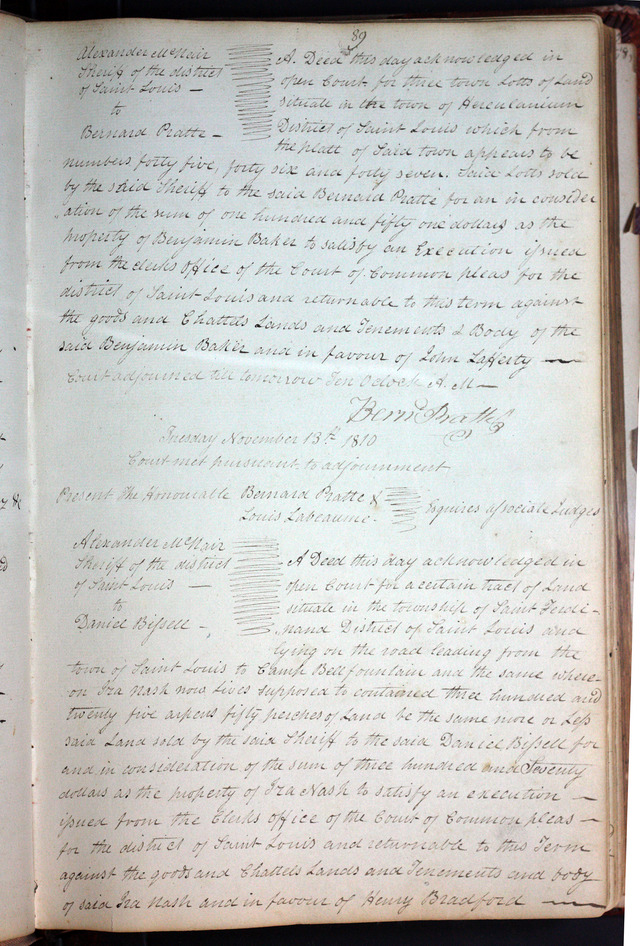 89
Alexander McNair
Sheriff of the district
of Saint Louis —
to
Bernard Pratte —
A Deed this day acknowledged in
open Court for three town Lotts of Land
situate in the town of Herculanium
District of Saint Louis which from
the platt of Said town appears to be
numbers forty five, forty six and forty seven. Said Lotts sold
by the said Sheriff to the said Bernard Pratte for an in consider
ation of the sum of one hundred and fifty one dollars as the
property of Benjamin Baker to satisby an Execution issued
from the clerks Office of the Court of Common pleas for the
district of Saint Louis and returnable to this term against
the goods and Chattels Lands and Tenements & Body of the
said Benjamin Baker and in favour of John Lafferty —
Court adjourned till tomorrow Ten Oclock A.M —
Bernd Pratte
Tuesday November 13th 1810
Court met pursuant to adjournment
Present the Honourable Bernard Pratte &
Louis Labeaume -
Esquires associate Judges
Alexander McNair
Sheriff of the district
of Saint Louis —
to
Daniel Bissell -
A Deed this day acknowledged in
open Court for a certain tract of Land
situate in the township of Saint Ferdi-
nand District of Saint Louis and
lying on the road leading from the
town of Saint Louis to Camp Bellfountain and the same where-
on Ira Nash now Lives supposed to contained three hundred and
twenty five arpens fifty perches of Land be the same more or Less
said Land sold by the said Sheriff to the said Daniel Bissell for
and in consideration of the sum of three hundred and Twenty
dollars as the property of Ira Nash to satisfy an execution —
issued from the Clerks office of the Court of Common pleas —
for the district of Saint Louis and returnable to this Term
against the goods and Chattels Lands and Tenements and body
of said Ira Nash and in favour of Henry Bradford —